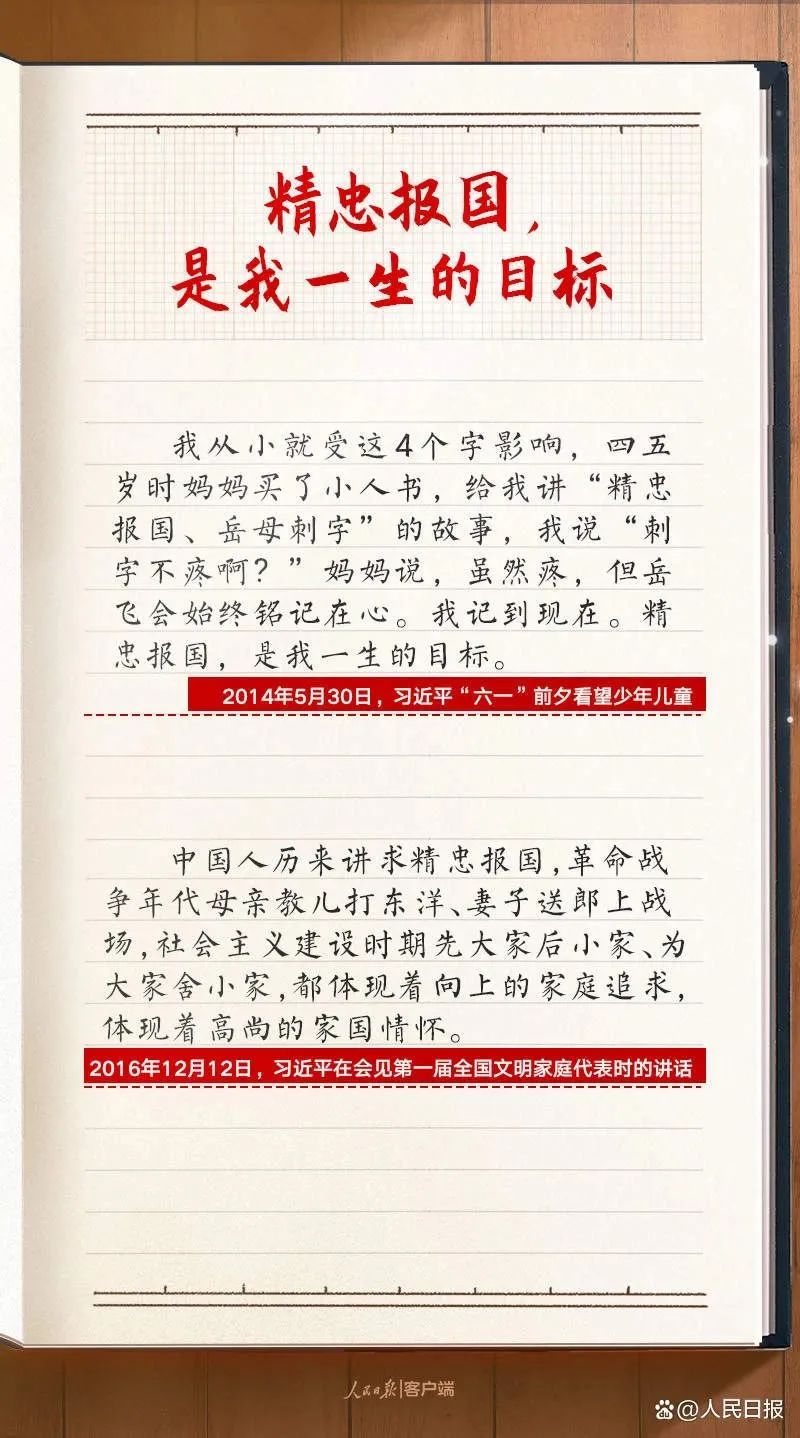 精忠报国，
是我一生的目标
我从小就受这4个字影响，四五
岁时妈妈买了小人书，给我讲“精忠
报国、岳母刺字”的故事，我说“刺
字不疼啊？”妈妈说，虽然疼，但岳
飞会始终铭记在心。我记到现在。精
忠报国，是我一生的目标。
2014年5月30日，习近平“六一”前夕看望少年儿童
中国人历来讲求精忠报国，革命战
争年代母亲教儿打东洋、妻子送郎上战
场，社会主义建设时期先大家后小家、为
大家舍小家，都体现着向上的家庭追求，
体现着高尚的家国情怀。
2016年12月12日，习近平在会见第一届全国文明家庭代表时的讲话
人民日报|客户端
@人民日报